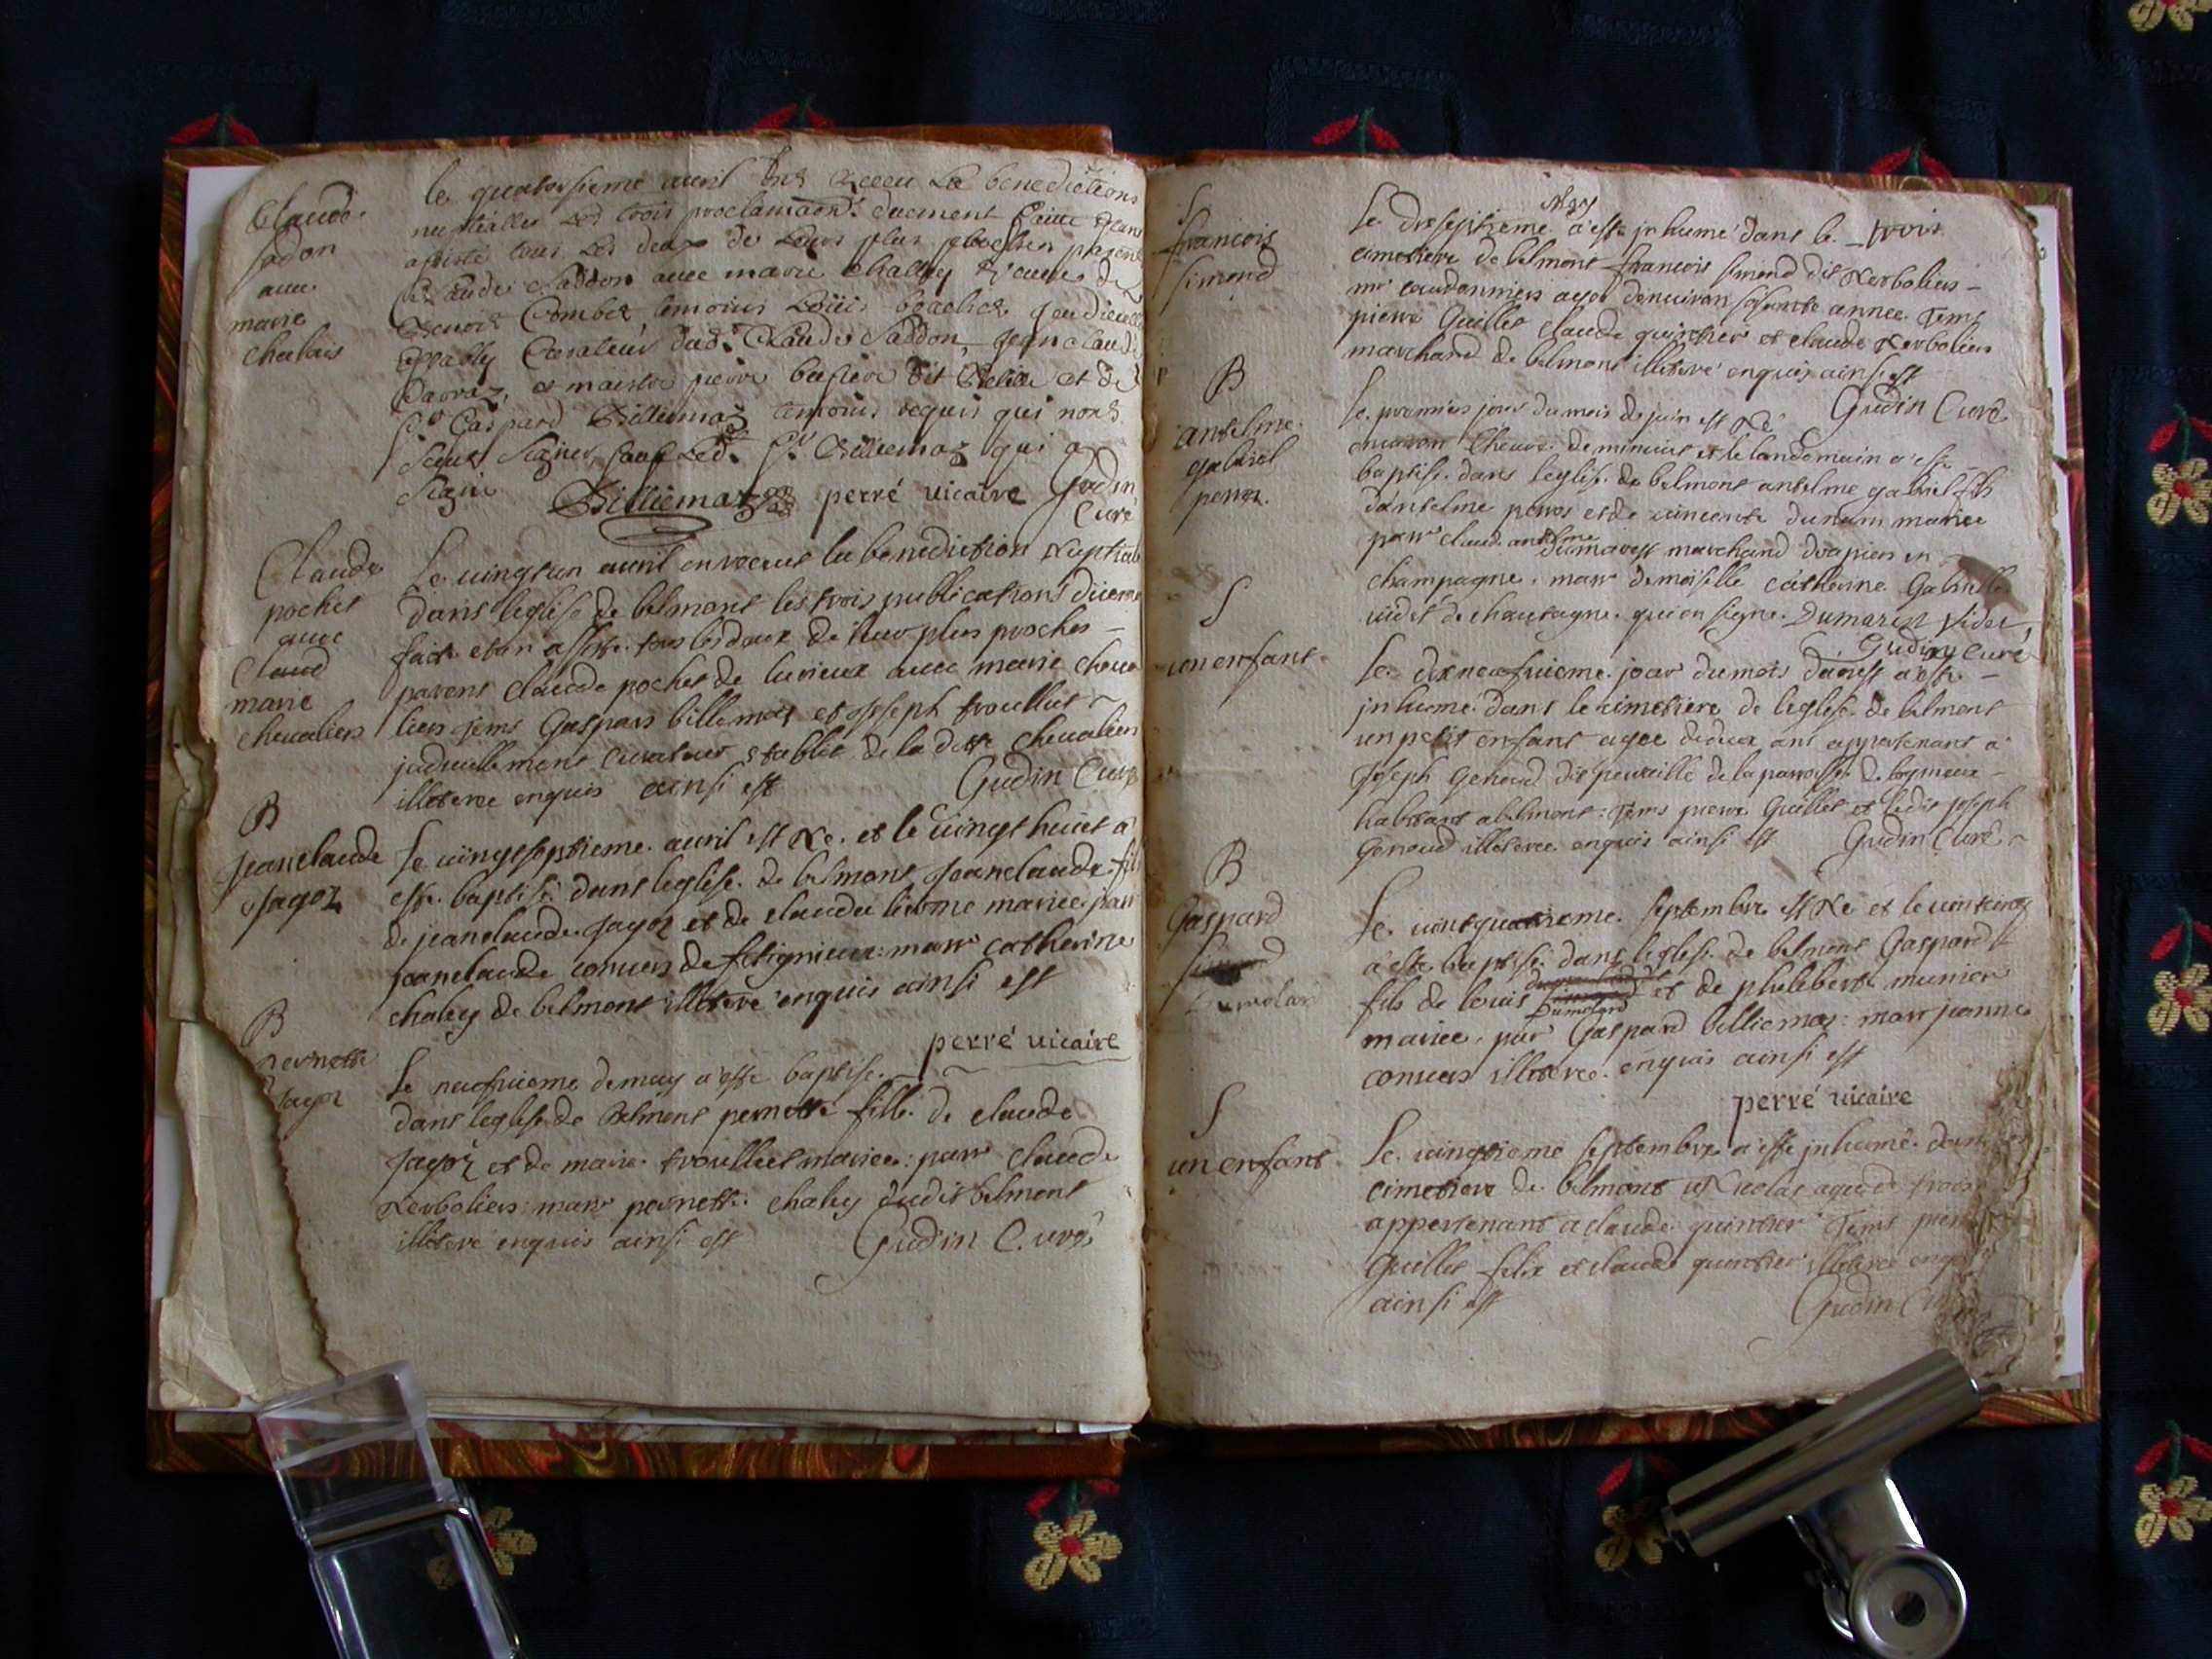 Claude
sadon
auec
marie
chalais
le quatorsieme auril ont Receu La benedictions
nuptialle Les trois proclamaõns duement faitte etants
assisté tous Les deux de Leurs plus proches parents
Claude Saddon auec marie challey veuue de
Benoit Combet temoins Loüis
establly Curateur dud.t Claude Saddon, Jean claude
Carraz, et maistre pierre bussiere dit et de
S.r Gaspard Billiemaz temoins requis qui nont
Sceus Signer sauf Led.t S.r Billiemaz qui a
Signé Billiemaz perré uicaire Gudin
Curé
Claude
pochet
auec
Claud
marie
cheualiers
Le uingt un auril on receus la benediction Nuptiale
dans leglise de belmont les trois publications duem
faicte etan assisté tous les deux de leur plus proches
parens claude pochet de luxieux auec marie cheua
liers tems Gaspars billemas et joseph troulliet
judiciellement curateur establit de la ditte cheualiers
illeteré enquis ainsi est Gudin Curé
B
jeanclaude
jayoz
Le uingtseptieme auril est Ne et le uingt huict a
este baptisé dans leglise de belmont jeanclaude fil
de jeanclaude jayoz et de claudu mariee par
jeanclaude conuers de fetignieux marr catherine
chaley de belmont illeteré enquis ainsi est
perré uicaire
B
pernette
jayoz
Le neufuieme de may a este baptisé
dans leglise de Belmont pernette fille de claude
jayoz et de marie troulliet mariee: parr claude
Nerboliers marr pernette chaley dudit belmont
illeteré enquis ainsi est Gudin C.uré
S
francois
simond
may
Le dixseptieme a este inhumé dans le
cimetiere de belmont francois simond dit Nerboliers
mr courdonniers agée denuiron soisante annee Tems
pierre Guillet claude quinttier et claude Nerboliers
marchand de belmont illeteré enquis ainsi est
Gudin Curé
B
anselme
gabriel
perroz
Le premiers jour du mois de juin est Né
enuiron lheure de minuict et le landemain a este
baptisé dans leglise de belmont anselme gabriel fils
danselme perros et de uincente dunam mariee
parr claude anthelme dumarest marchand drapiers en
champagne: marr demoiselle catherine Gabrielle
uidet de chautagne qui on signe. Dumarest Videt
Gudin curé
S
un enfant
Le dixneufuieme jour du mois daoust a este
inhumé dans le cimetiere de leglise de belmont
un petit enfant agee de deux ans appartenant a
joseph Genoud dit de la parroisse de
habitant a belmont: Tems pierre Guillet et ledit joseph
Genoud illeteree enquis ainsi est Gudin Curé
B
Gaspard
Dumolard
Le uintquatrieme septembre est Né et le uintcinq
a este baptisé dans leglise de belmont Gaspard
fils de louis Dumolard et de philiberte munier
mariee: par Gaspard billiemaz: marr jeanne
conuers illeteree enquis ainsi est
perré uicaire
S
un enfant
Le uingtieme septembre a este inhumé dans
cimetiere de belmont agee de trois
appertenant a claude quinttier Tems pierre
Guillet felix et claude quinttier illeteré enquis
ainsi est Gudin Curé